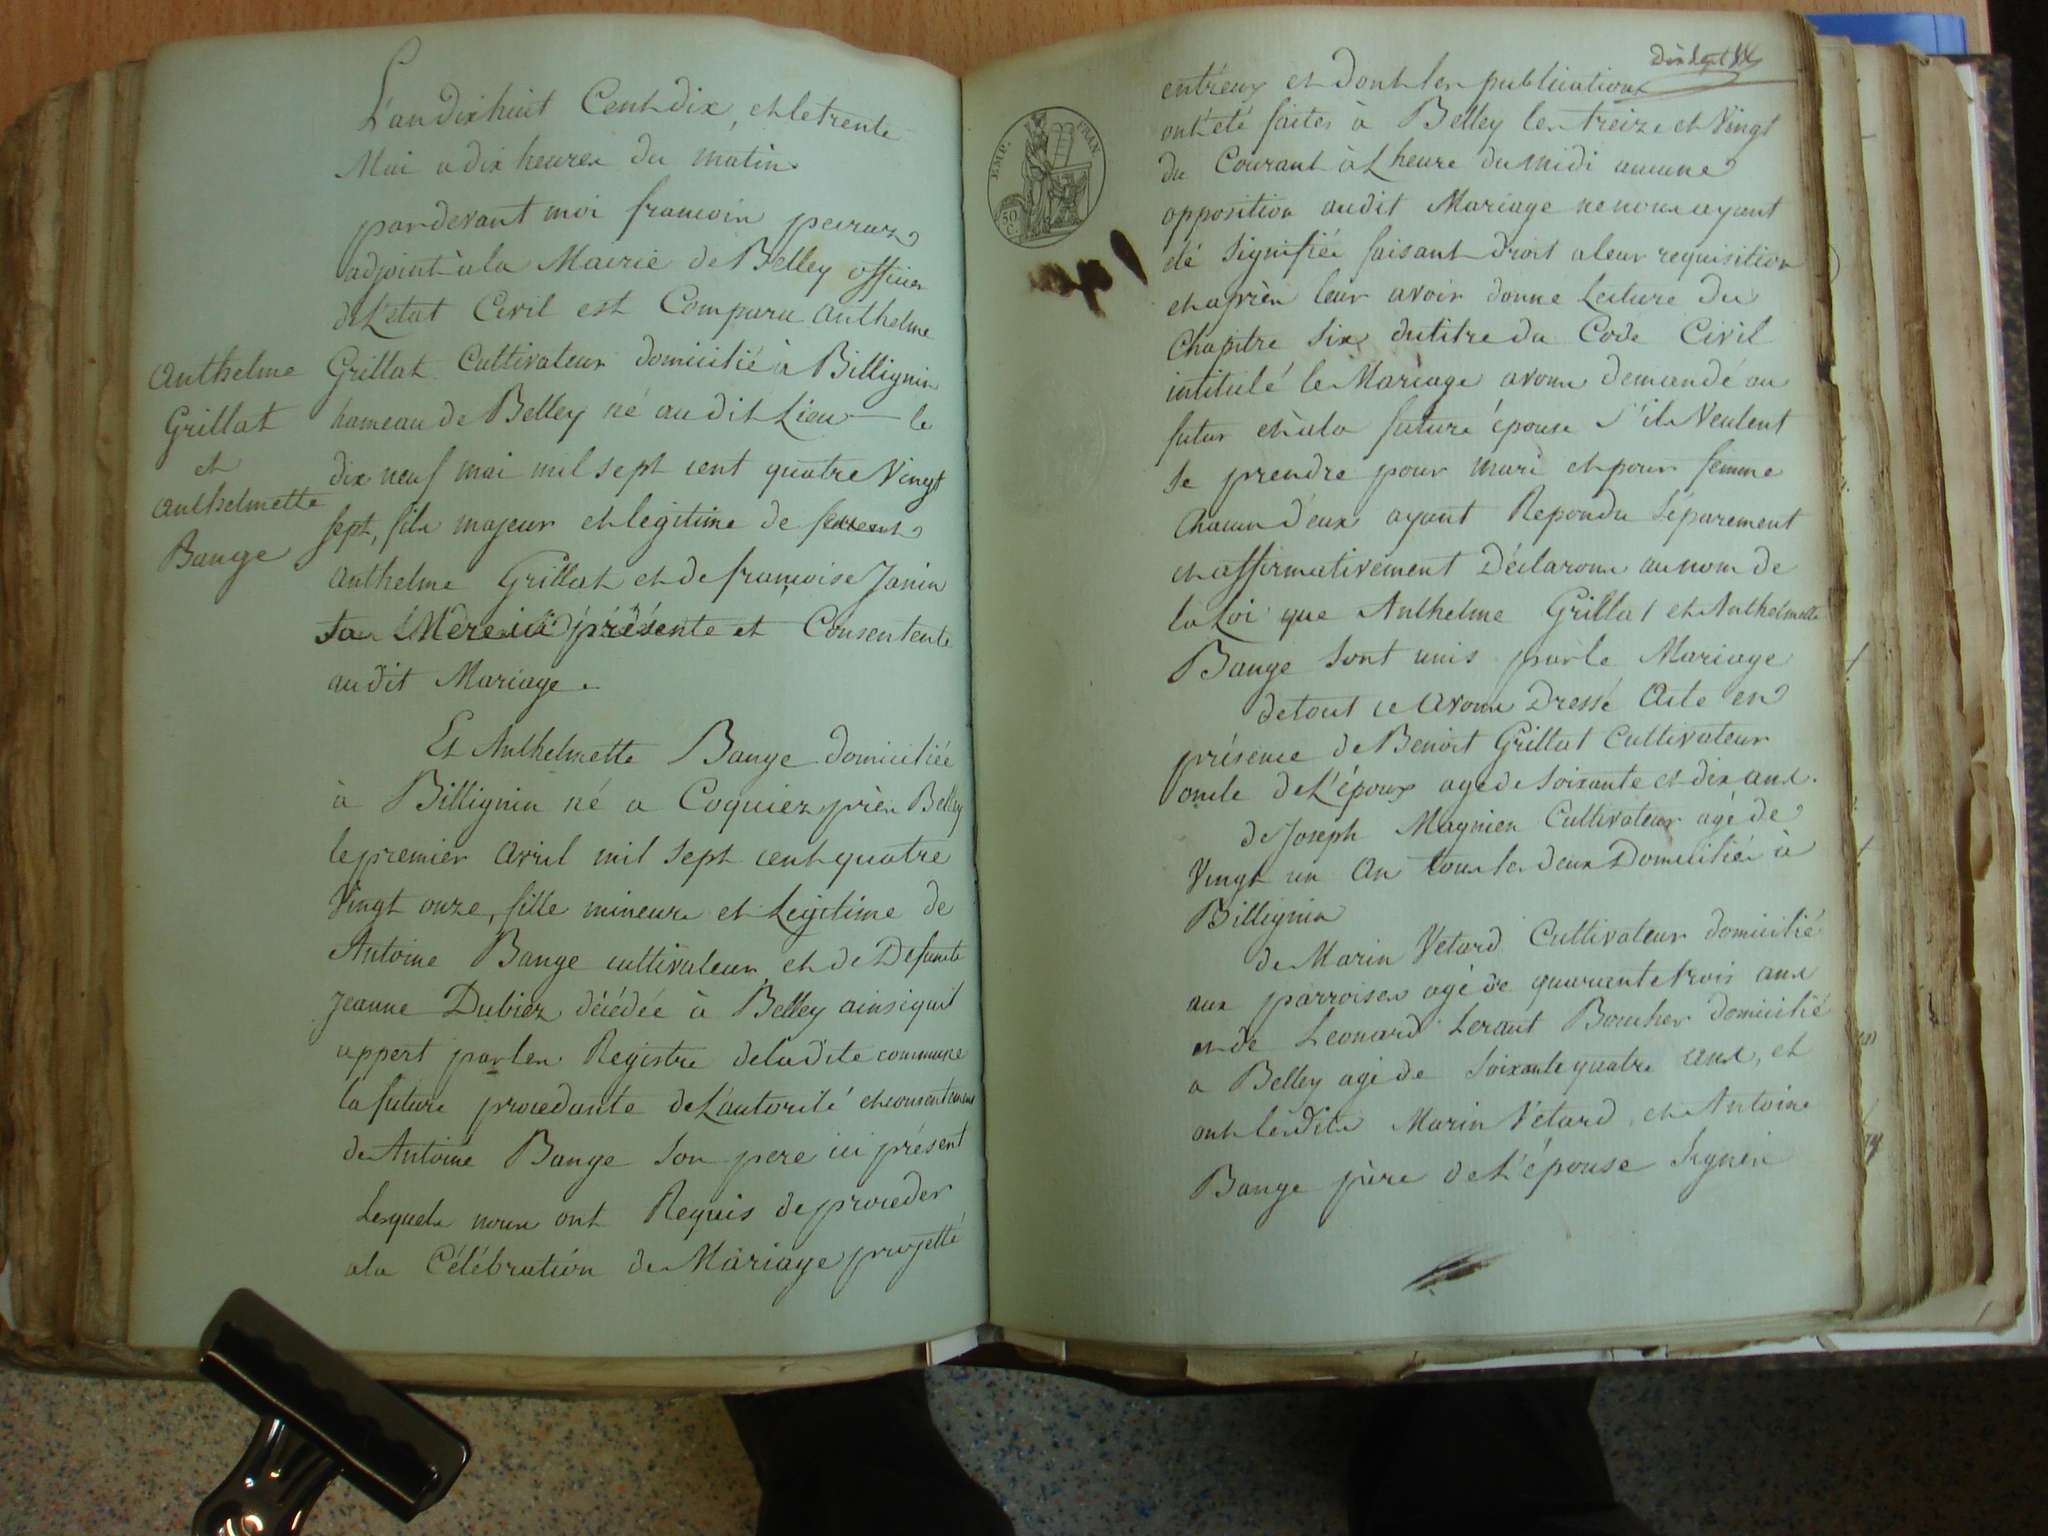 L'an dix huit Cent dix, et le trente
Mai a dix heures du matin
pardevant moi francois peyraz
adjoint à la Mairie de Belley officier
de L'etat Civil est Comparu Anthelme
Grillat Cultivateur domicilié à Billignin
hameau de Belley né au dit Lieu le
dix neuf mai mil sept cent quatre Vingt
sept, fils majeur et legitime de
Anthelme Grillat et de françoise Janin
sa Mere ici présente et Consentente
au dit Mariage.
Anthelme
Grillat
et
Anthelmette
Bange
Et Anthelmette Bange domiciliée
à Billignin né a Coquiez près Belley
le premier Avril mil sept cent quatre
Vingt onze, fille mineure et Legitime de
Antoine Bange cultivateur et de Defunte
Jeanne Dubiez décédée à Belley ainsi quil
appert par les Registre de la dite commune
la future procedante de L'autorité et consentement
de Antoine Bange son pere ici présent
Lesquels nous ont Requis de proceder
a la Célébration de Mariage projetté
EMP. FRAN.
50 C.
entreux et dont les publications
ont été faites à Belley les treize et Vingt
du Courant à L heure du midi aucune
opposition audit Mariage ne nous ayant
été signifiée faisant droit a leur requisition
et après leur avoir donné Lecture du
Chapitre six du titre du Code Civil
intitulé le Mariage avons demandé au
futur et à la future épouse s'ils Veulent
se prendre pour mari et pour femme
chacun d'eux ayant Repondu séparement
et affirmativement Déclarons au nom de
la Loi que Anthelme Grillat et Anthelmette
Bange sont unis par le Mariage
de tout ce avons Dressé Acte en
présence de Benoit Grillat Cultivateur
oncle de L'époux agé de soixante et dix ans.
de Joseph Magnien Cultivateur agé de
Vingt un An tous les deux Domiciliés à
Billignin
de Marin Vetard Cultivateur domicilié
aux parroises agé de quarante trois ans
et de Leonard Leraut Boucher domicilié
a Belley agé de soixante quatre ans, et
ont lesdits Marin Vetard et Antoine
Bange père de L'épouse Signés